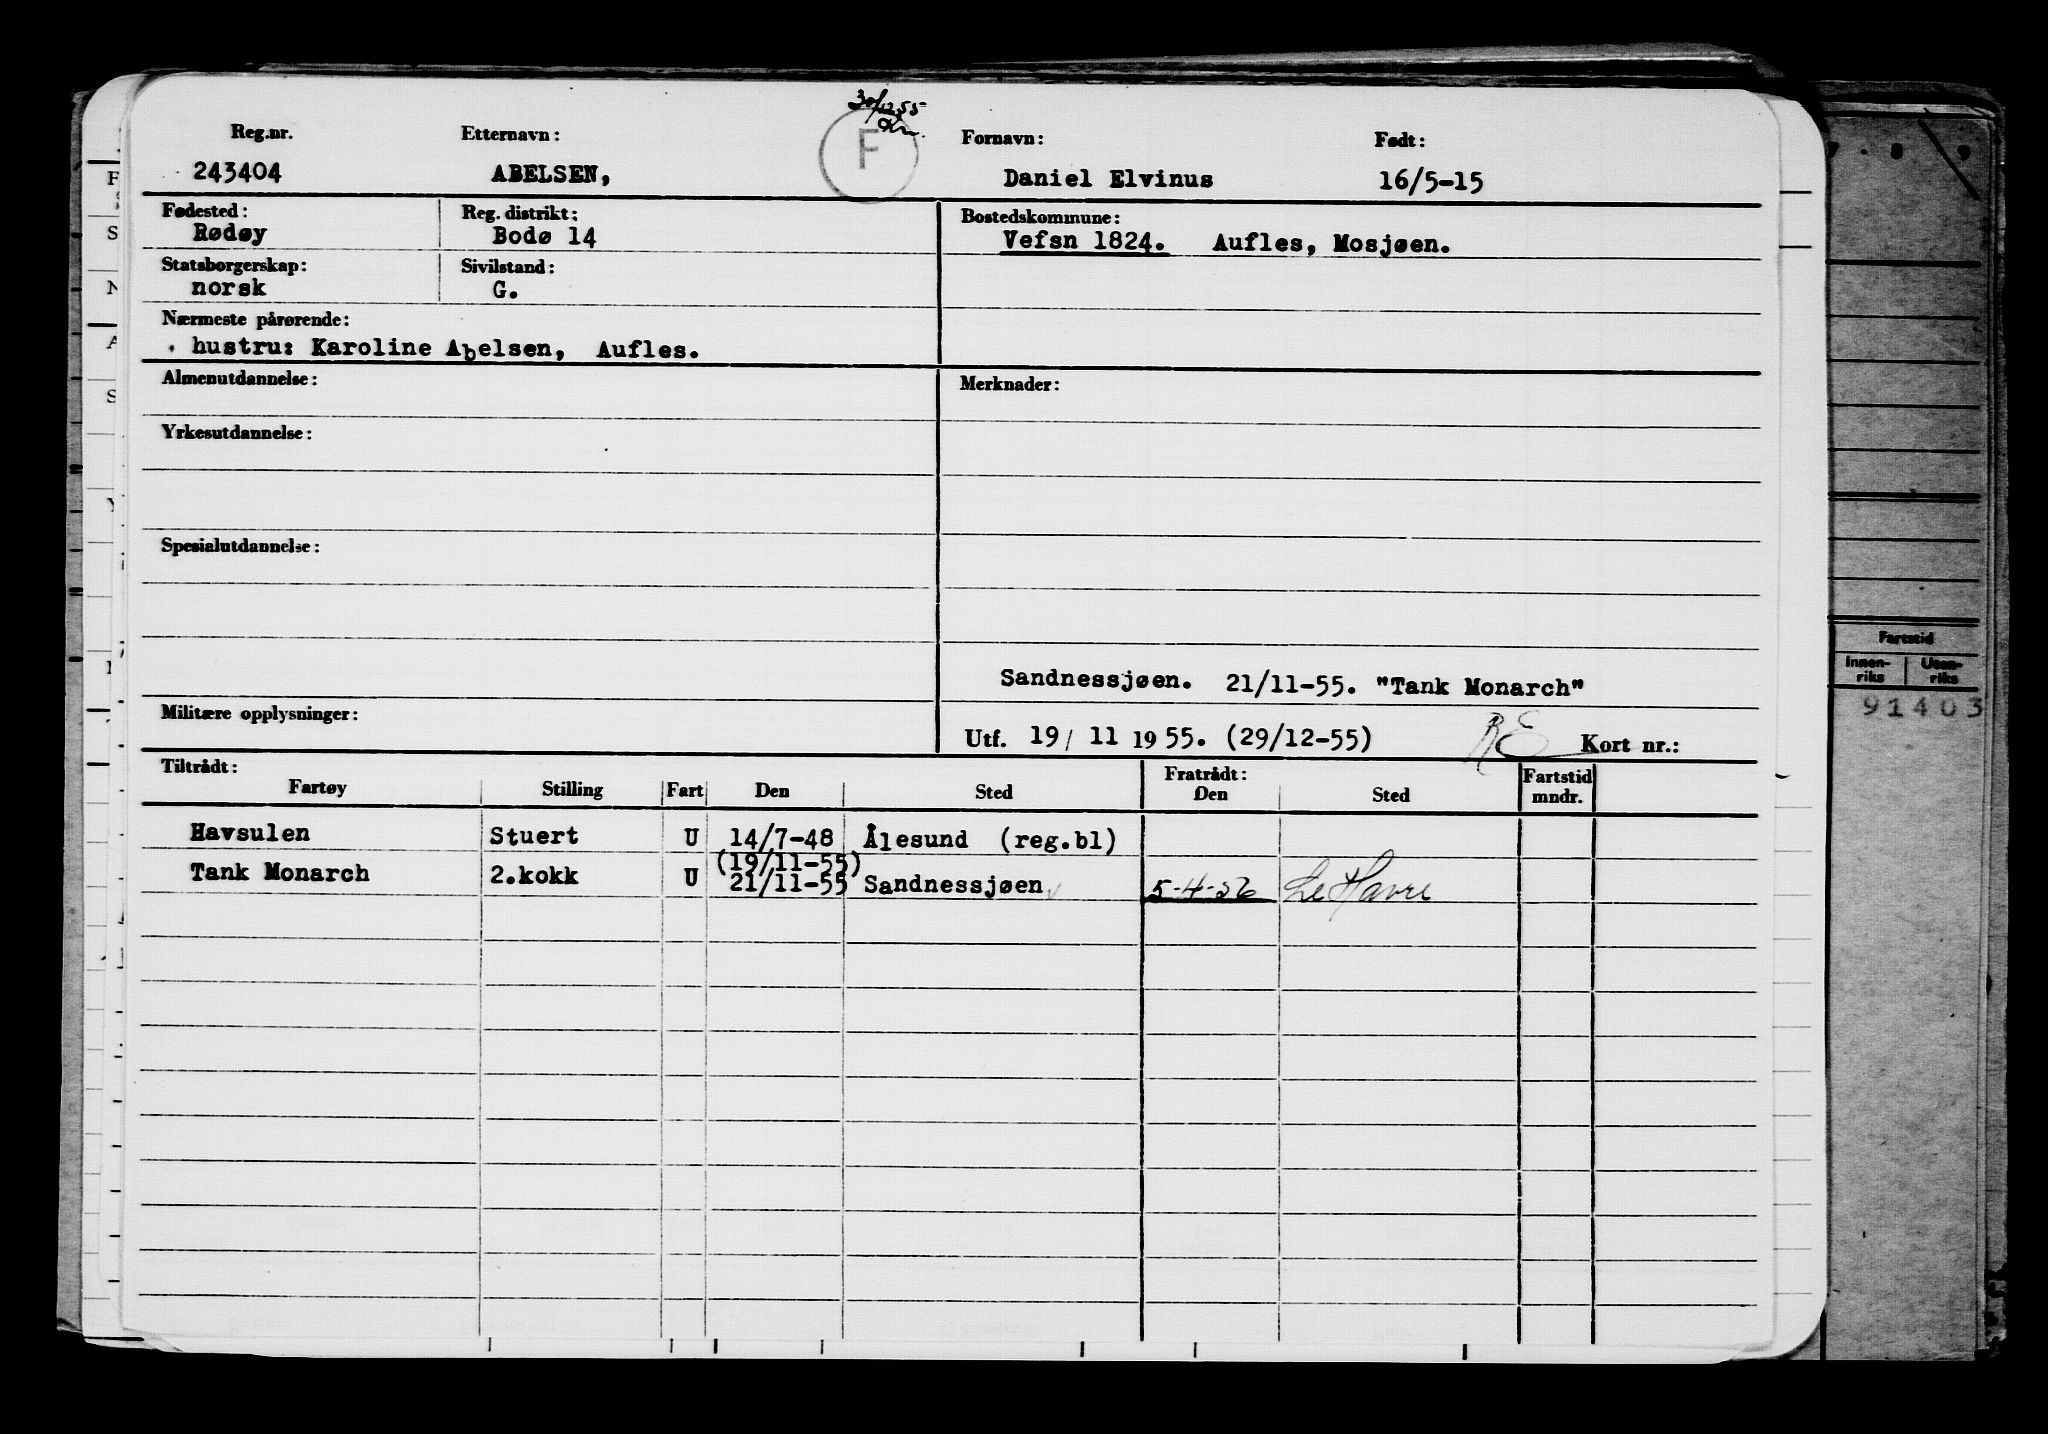 30/12 55
F
Reg.nr. Etternavn: Fornavn: Født:
243404 ABELSEN, Daniel Elvinus 16/5-15
Fødested: Reg. distrikt: Bostedskommune:
Rødøy Bodø 14 Vefsn 1824. Aufles, Mosjøen.
Statsborgerskap: Sivilstand:
norsk G.
Nærmeste pårørende:
hustru: Karoline Abelsen, Aufles.
Almenutdannelse: Merknader:
Yrkesutdannelse:
Spesialutdannelse:
Sandnessjøen. 21/11-55. "Tank Monarch"
Militære opplysninger:
Utf. 19/ 11 19 55. (29/12-55) RE Kort nr.:
Tiltrådt: Fratrådt: Fartstid
Fartøy Stilling Fart Den Sted Den Sted mndr.
Havsulen Stuert U 14/7-48 Ålesund (reg.bl)
(19/11-55)
Tank Monarch 2.kokk U 21/11-55 Sandnessjøen 5-4-56 Le Havre
7 . 8 9
Fartstid
Innen- Uten-
riks riks
91403